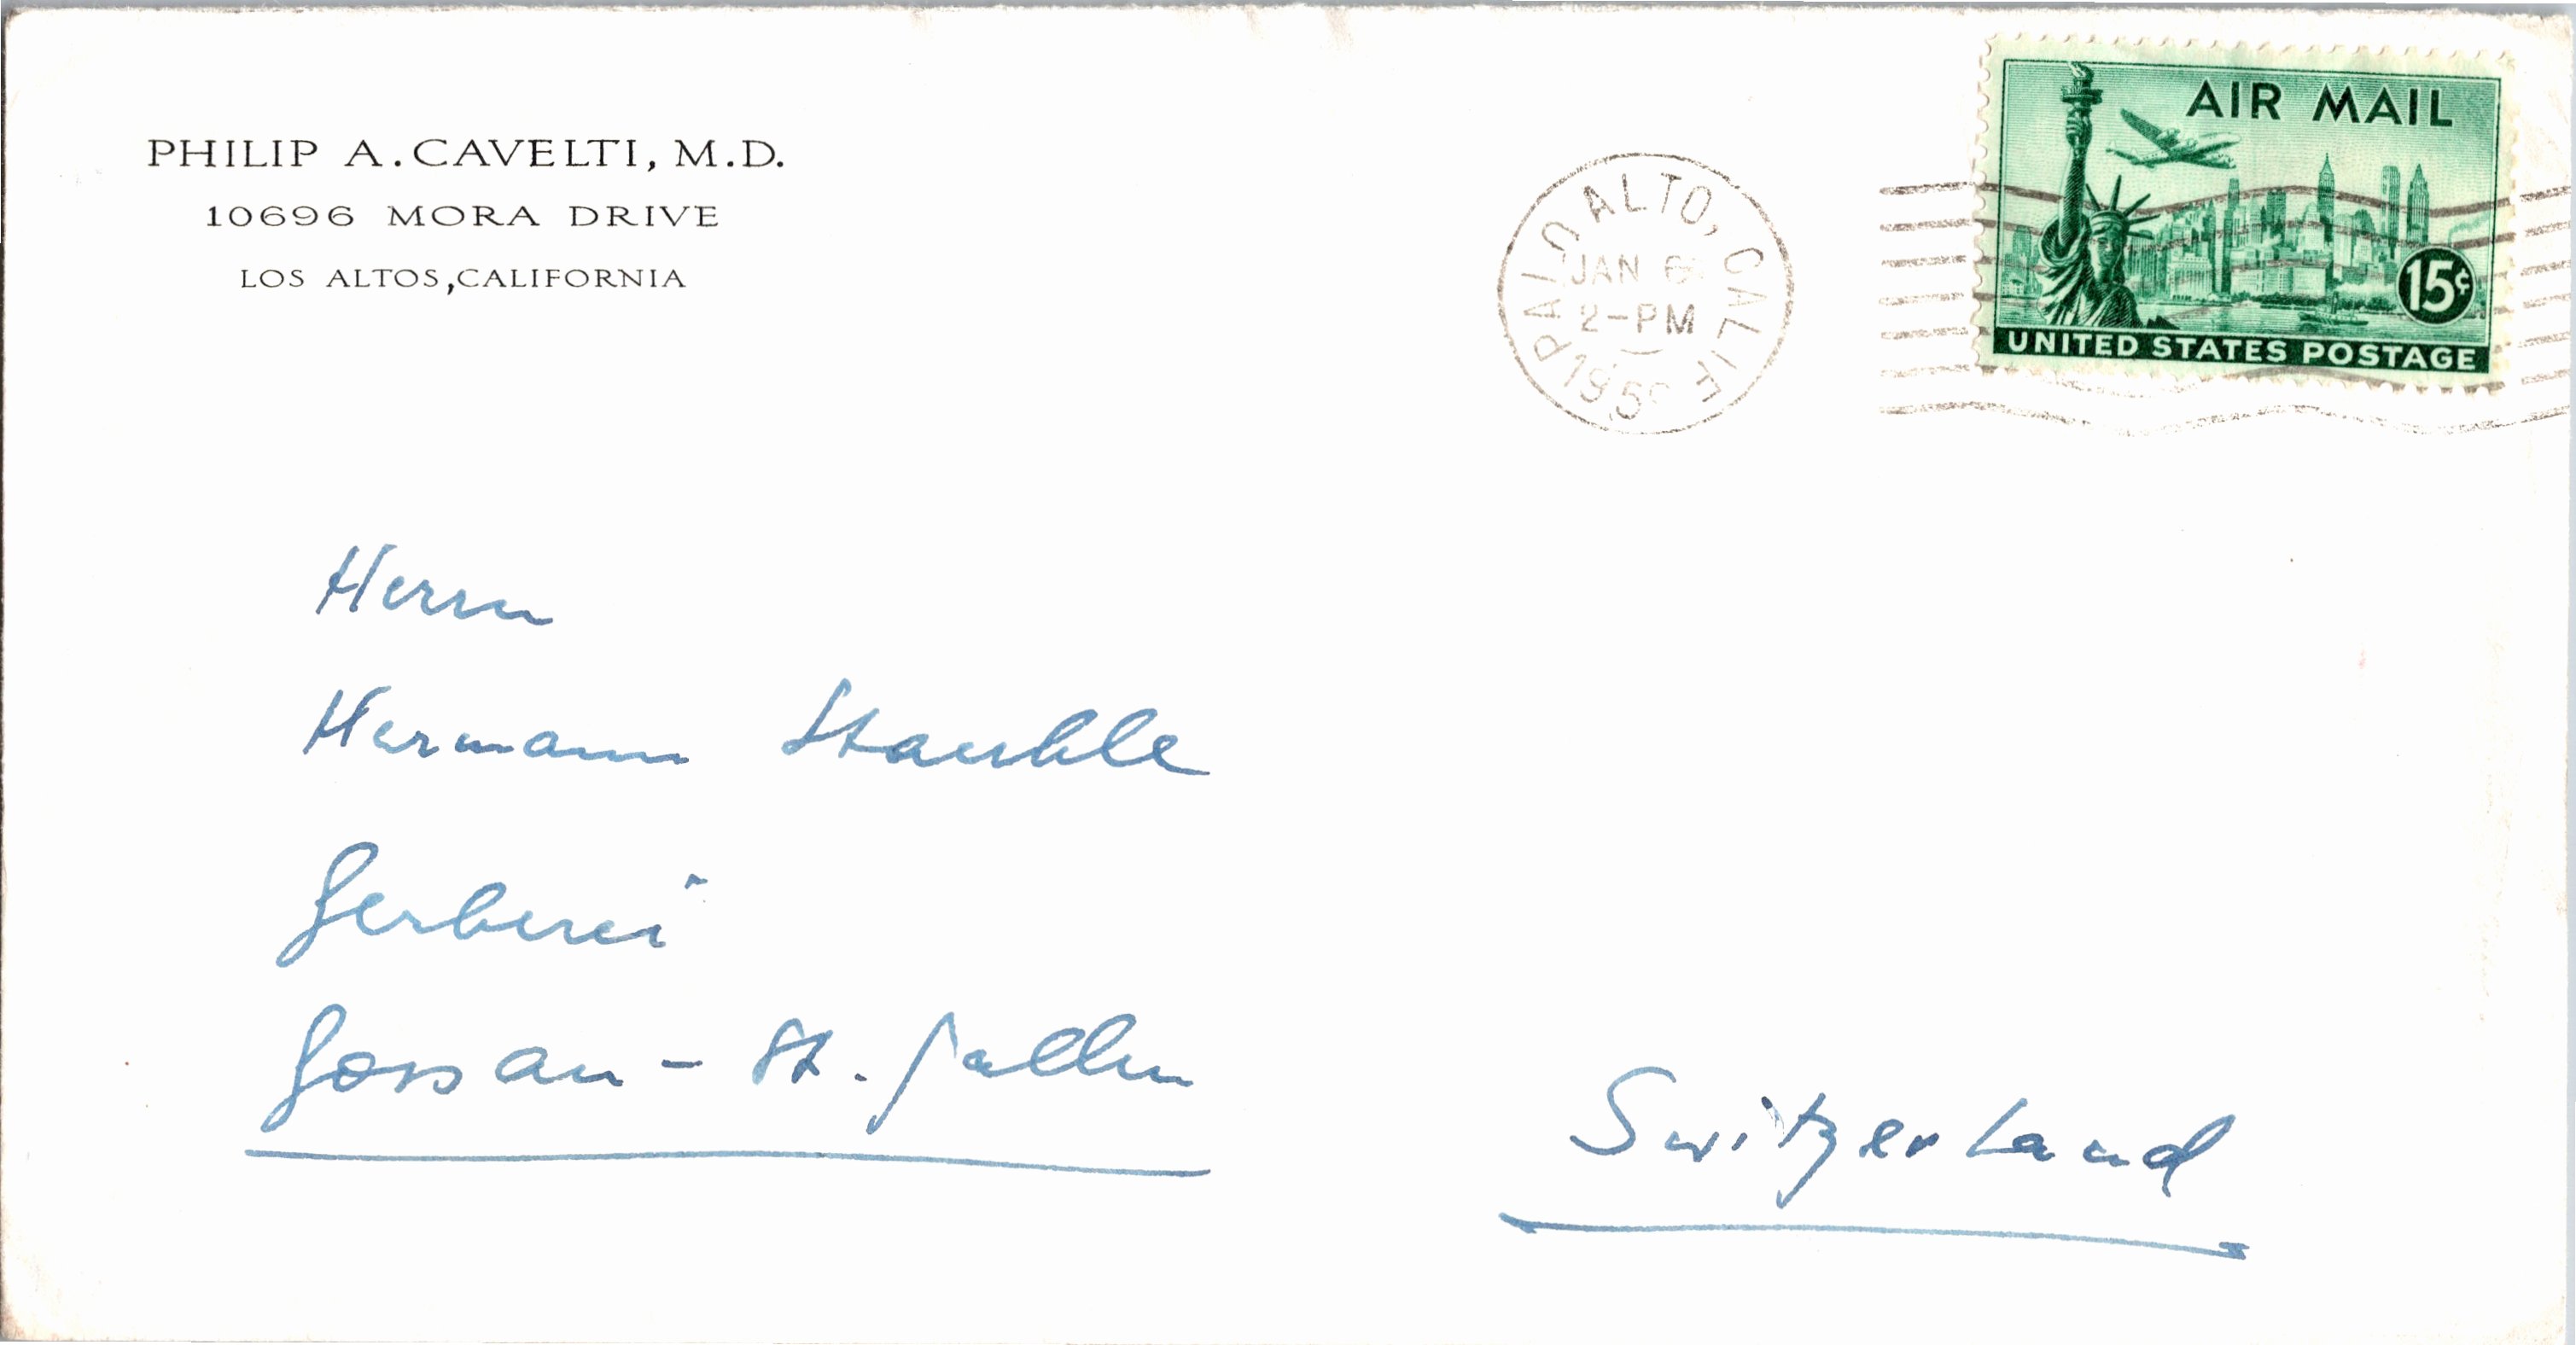 PHILIP A. CAVELTI, M.D.
10696 MORA DRIVE
LOS ALTOS, CALIFORNIA
PALO ALTO, CALIF
JAN 6
2-PM
AIR MAIL
15¢
UNITED STATES POSTAGE
Herrn
Hermann Stauble
Gerberei
Gossau - St. Gallen
Switzerland